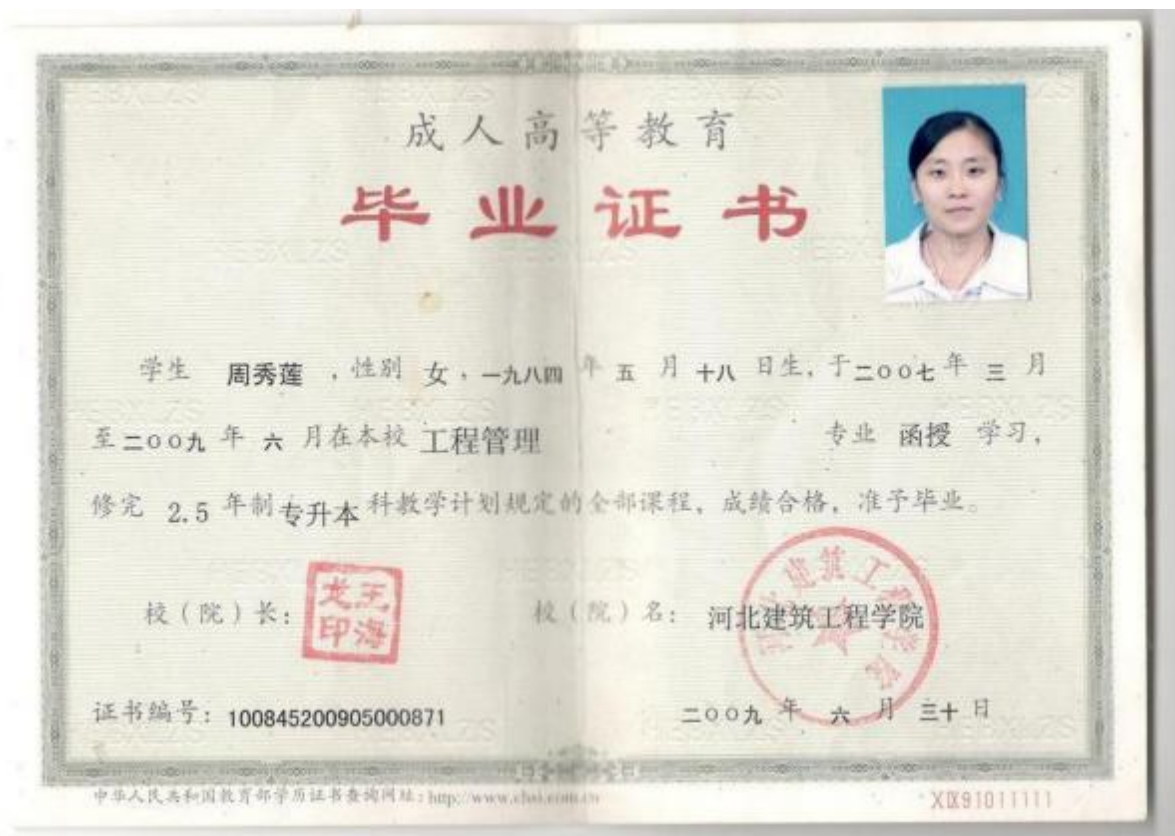 成人高等教育
毕业证书
学生 周秀莲 ，性别 女，一九八四 年 五 月 十八 日生，于二00七年 三 月
至二00九 年 六 月在本校 工程管理 专业 函授 学习，
修完 2.5 年制专升本科教学计划规定的全部课程，成绩合格，准予毕业。
校（院）长：
王海龙印
校（院）名： 河北建筑工程学院
河北建筑工程学院
证书编号：100845200905000871
二00九 年 六 月 三十 日
中华人民共和国教育部学历证书查询网址：http://www.chsi.com.cn
XⅨ91011111